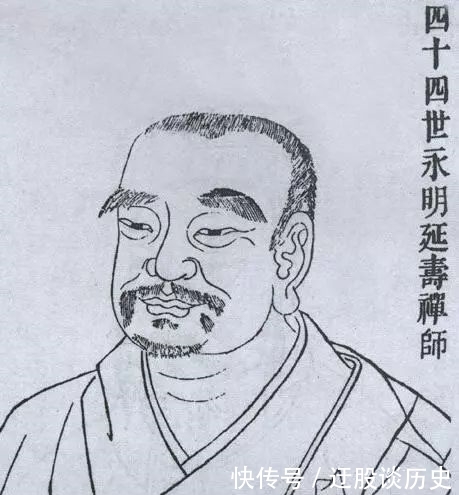 四十四世永明延壽禪師
快传号/迁股谈历史